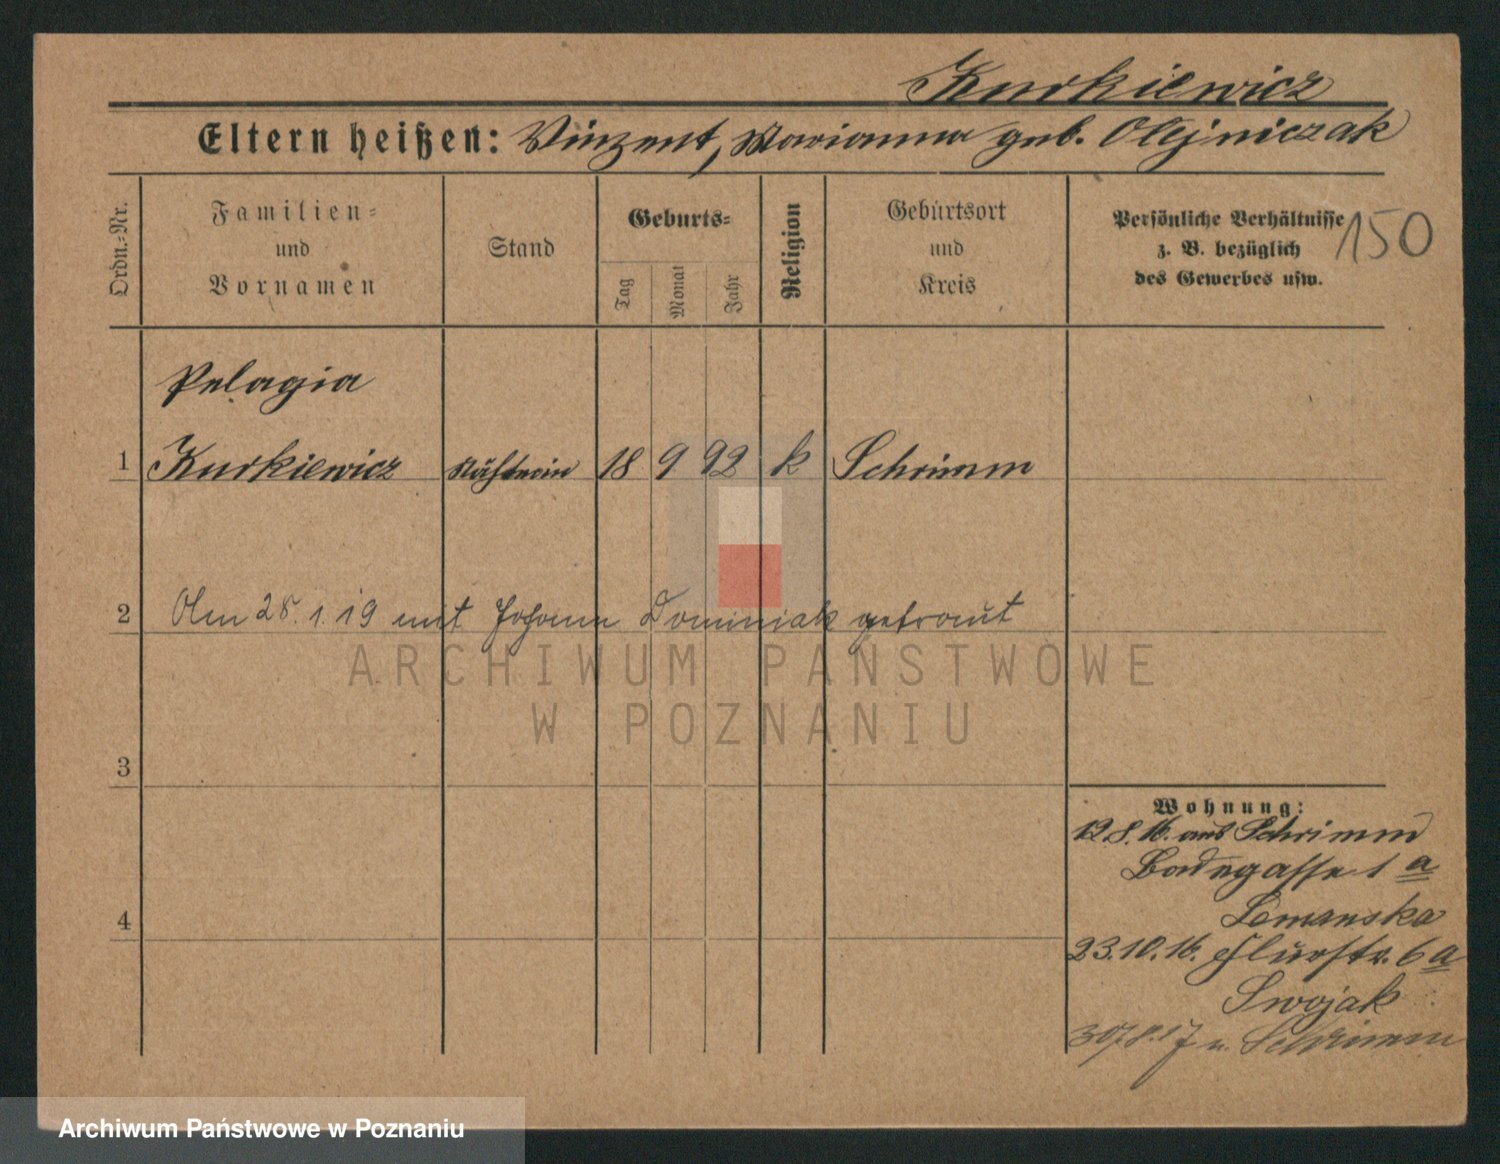 Kurkiewicz
Eltern heißen: Vinzent, Marianna geb. Olejniczak
Ordn.-Nr.
Familien-
und
Vornamen
Stand
Geburts-
Tag
Monat
Jahr
Religion
Geburtsort
und
Kreis
Persönliche Verhältnisse
z. B. bezüglich
des Gewerbes usw.
150
Pelagia
1 Kurkiewicz Näherin 18 9 92 k Schrimm
2 Am 28.1.19 mit Johann Dominiak getraut
3
4
Wohnung:
12.8.16. aus Schrimm
Badegasse 1 a
23.10.16. Flurstr. 6 a
Swojak
30/8.17 n. Schrimm
ARCHIWUM PAŃSTWOWE
W POZNANIU
Archiwum Państwowe w Poznaniu